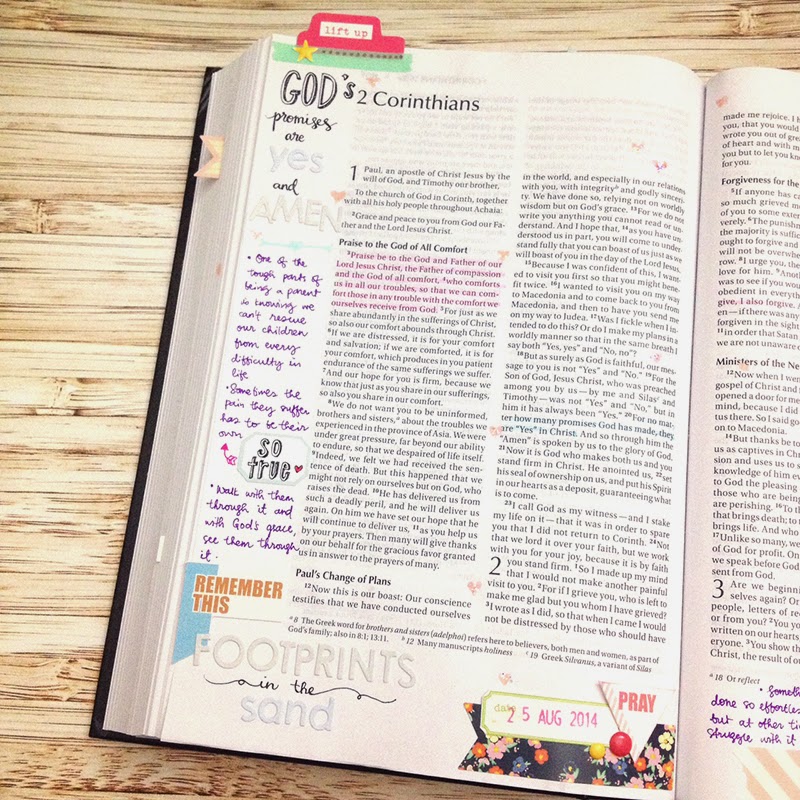 lift up
GOD's
promises
are
yes
and
AMEN
• One of the
tough parts of
being a parent
is knowing we
can't rescue
our children
from every
difficulty in
life
• Sometimes the
pain they suffer
has to be their
own
SO
true
• Walk with them
through it and
with God's grace,
see them through
it.
REMEMBER
THIS
FOOTPRINTS
in the
sand
2 Corinthians
1 Paul, an apostle of Christ Jesus by the
will of God, and Timothy our brother,
To the church of God in Corinth, together
with all his holy people throughout Achaia:
2Grace and peace to you from God our Fa-
ther and the Lord Jesus Christ.
Praise to the God of All Comfort
3Praise be to the God and Father of our
Lord Jesus Christ, the Father of compassion
and the God of all comfort, 4who comforts
us in all our troubles, so that we can com-
fort those in any trouble with the comfort we
ourselves receive from God. 5For just as we
share abundantly in the sufferings of Christ,
so also our comfort abounds through Christ.
6If we are distressed, it is for your comfort
and salvation; if we are comforted, it is for
your comfort, which produces in you patient
endurance of the same sufferings we suffer.
7And our hope for you is firm, because we
know that just as you share in our sufferings,
so also you share in our comfort.
8We do not want you to be uninformed,
brothers and sisters,a about the troubles we
experienced in the province of Asia. We were
under great pressure, far beyond our ability
to endure, so that we despaired of life itself.
9Indeed, we felt we had received the sen-
tence of death. But this happened that we
might not rely on ourselves but on God, who
raises the dead. 10He has delivered us from
such a deadly peril, and he will deliver us
again. On him we have set our hope that he
will continue to deliver us, 11as you help us
by your prayers. Then many will give thanks
on our behalf for the gracious favor granted
us in answer to the prayers of many.
Paul's Change of Plans
12Now this is our boast: Our conscience
testifies that we have conducted ourselves
in the world, and especially in our relations
with you, with integrityb and godly sinceri-
ty. We have done so, relying not on worldly
wisdom but on God's grace. 13For we do not
write you anything you cannot read or un-
derstand. And I hope that, 14as you have un-
derstood us in part, you will come to under-
stand fully that you can boast of us just as we
will boast of you in the day of the Lord Jesus.
15Because I was confident of this, I want-
ed to visit you first so that you might bene-
fit twice. 16I wanted to visit you on my way
to Macedonia and to come back to you from
Macedonia, and then to have you send me
on my way to Judea. 17Was I fickle when I in-
tended to do this? Or do I make my plans in a
worldly manner so that in the same breath I
say both "Yes, yes" and "No, no"?
18But as surely as God is faithful, our mes-
sage to you is not "Yes" and "No." 19For the
Son of God, Jesus Christ, who was preached
among you by us—by me and Silasc and
Timothy—was not "Yes" and "No," but in
him it has always been "Yes." 20For no mat-
ter how many promises God has made, they
are "Yes" in Christ. And so through him the
"Amen" is spoken by us to the glory of God.
21Now it is God who makes both us and you
stand firm in Christ. He anointed us, 22set
his seal of ownership on us, and put his Spirit
in our hearts as a deposit, guaranteeing what
is to come.
23I call God as my witness—and I stake
my life on it—that it was in order to spare
you that I did not return to Corinth. 24Not
that we lord it over your faith, but we work
with you for your joy, because it is by faith
you stand firm. 2 1So I made up my mind
that I would not make another painful
visit to you. 2For if I grieve you, who is left to
make me glad but you whom I have grieved?
3I wrote as I did, so that when I came I would
not be distressed by those who should have
a 8 The Greek word for brothers and sisters (adelphoi) refers here to believers, both men and women, as part of
God's family; also in 8:1; 13:11. b 12 Many manuscripts holiness c 19 Greek Silvanus, a variant of Silas
date
2 5 AUG 2014
PRAY
made me rejoice. I h
you, that you would
wrote you out of grea
of heart and with m
you but to let you know
for you.
Forgiveness for the
5If anyone has ca
so much grieved m
of you to some exten
verely. 6The punishm
the majority is suffic
ought to forgive and
will not be overwhe
row. 8I urge you, the
love for him. 9Anoth
was to see if you wou
obedient in everythi
give, I also forgive.
en—if there was any
forgiven in the sight
11in order that Satan
we are not unaware o
Ministers of the Ne
12Now when I wen
gospel of Christ and
opened a door for me
mind, because I did
us there. So I said go
on to Macedonia.
14But thanks be to
us as captives in Chris
sion and uses us to s
knowledge of him ev
to God the pleasing
those who are being
are perishing. 16To t
that brings death; to t
brings life. And who
17Unlike so many, we
of God for profit. On
we speak before God
sent from God.
3 Are we beginni
selves again? Or
people, letters of re
or from you? 2You yo
written on our hearts
everyone. 3You show th
Christ, the result of o
a 18 Or reflect
• Someth
done so effortles
but at other tim
struggle with it